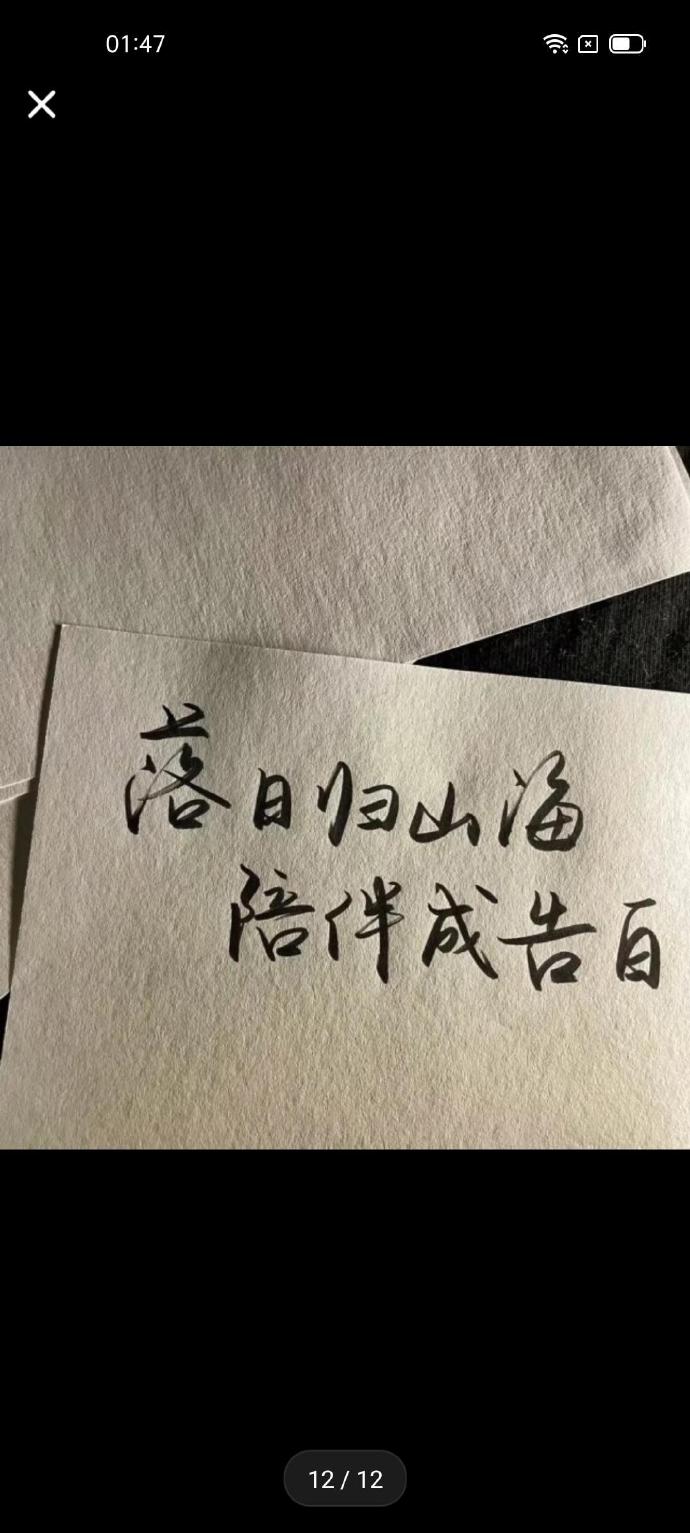 01:47
落日归山海
陪伴成告白
12 / 12